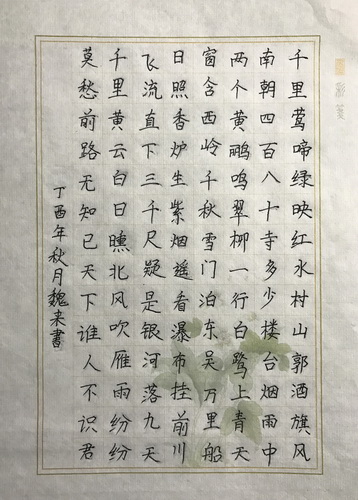 千里莺啼绿映红水村山郭酒旗风
南朝四百八十寺多少楼台烟雨中
两个黄鹂鸣翠柳一行白鹭上青天
窗含西岭千秋雪门泊东吴万里船
日照香炉生紫烟遥看瀑布挂前川
飞流直下三千尺疑是银河落九天
千里黄云白日曛北风吹雁雨纷纷
莫愁前路无知已天下谁人不识君
丁酉年秋月魏来書